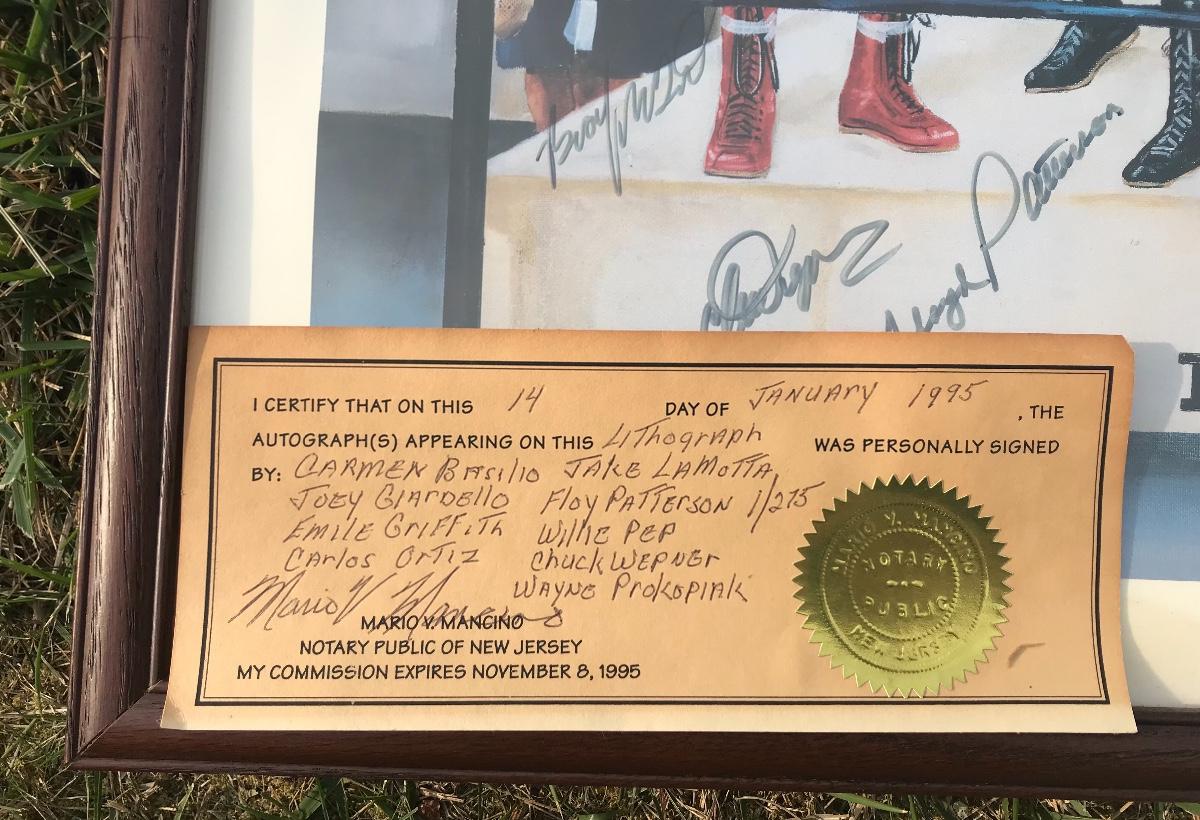 Floyd Patterson
I CERTIFY THAT ON THIS 14 DAY OF JANUARY 1995, THE
AUTOGRAPH(S) APPEARING ON THIS LiThograph WAS PERSONALLY SIGNED
BY: CARMEN BASiliO JAKE LAMOTTA,
JOEY GIARDELLO FlOy PATTERSON 1/275
EMILE GRIFFITH WILLIE PEP
CARlOS ORTIZ CHUCK WEPNER
WAYNE PROKOPIAK
Mario V Mancino
MARIO V. MANCINO
NOTARY PUBLIC OF NEW JERSEY
MY COMMISSION EXPIRES NOVEMBER 8, 1995
MARIO V. MANCINO
NOTARY
PUBLIC
NEW JERSEY